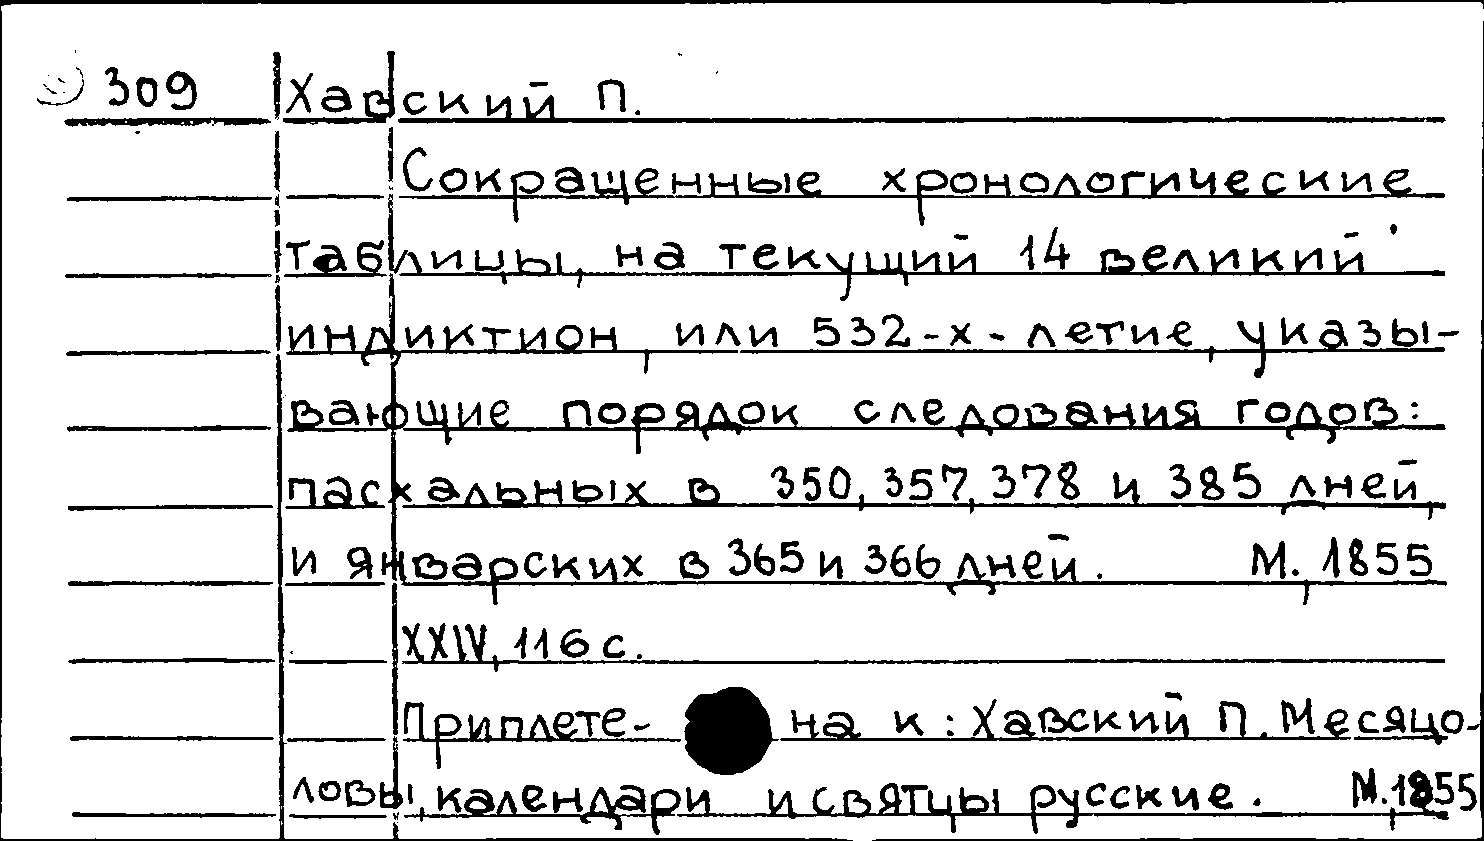 309 Хавский П.
Сокращенные хронологические
таблицы, на текущий 14 великий
индиктион, или 532-х-летие, указы-
вающие порядок следования годов:
пасхальных в 350, 357, 378 и 385 дней,
и январских в 365 и 366 дней. М., 1855
XXIV, 116 с.
Приплете- на к: Хавский П. Месяцо-
ловы, календари и святцы русские. М., 1855